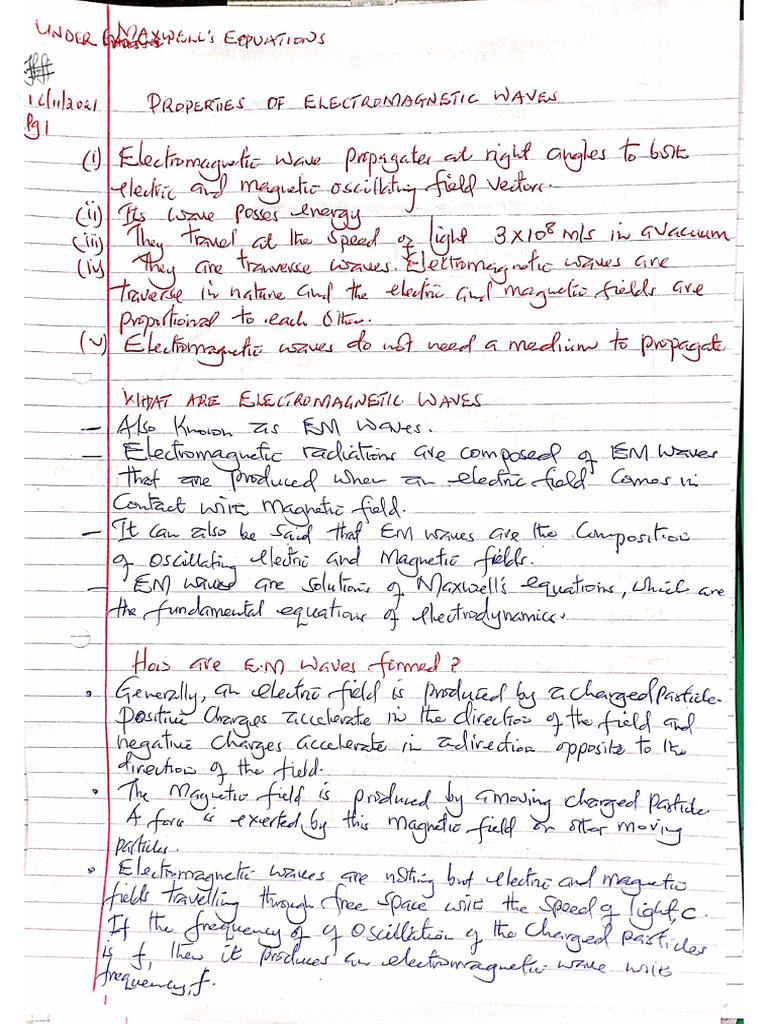 UNDER MAXWELL'S EQUATIONS
16/11/2021 PROPERTIES OF ELECTROMAGNETIC WAVES
Pg 1
(i) Electromagnetic wave propagates at right angles to both
electric and magnetic oscillating field vectors.
(ii) Its wave posses energy
(iii) They travel at the speed of light 3x10⁸ m/s in a vacuum
(iv) They are tranverse waves. Electromagnetic waves are
traverse in nature and the electric and magnetic fields are
proportional to each other.
(v) Electromagnetic waves do not need a medium to propagate
WHAT ARE ELECTROMAGNETIC WAVES
– Also known as EM waves.
– Electromagnetic radiations are composed of EM waves
that are produced when an electric field comes in
contact with magnetic field.
– It can also be said that EM waves are the composition
of oscillating electric and magnetic fields.
– EM waves are solutions of Maxwell's equations, which are
the fundamental equations of electrodynamics.
How are E.M waves formed?
• Generally, an electric field is produced by a charged particle.
Positive charges accelerate in the direction of the field and
negative charges accelerate in a direction opposite to the
direction of the field.
• The Magnetic field is produced by a moving charged particle.
A force is exerted by this magnetic field on other moving
particles.
• Electromagnetic waves are nothing but electric and magnetic
fields travelling through free space with the speed of light, c.
If the frequency of of oscillation of the charged particles
is f, then it produces an electromagnetic wave with
frequency, f.